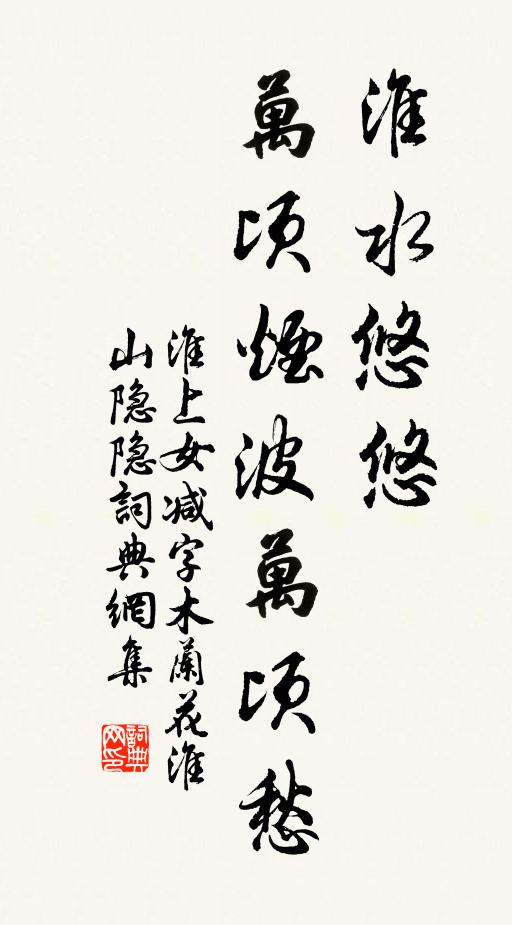 淮水悠悠
萬頃煙波萬頃愁
淮上女减字木蘭花淮
山隐隐詞典網集
詞典网印